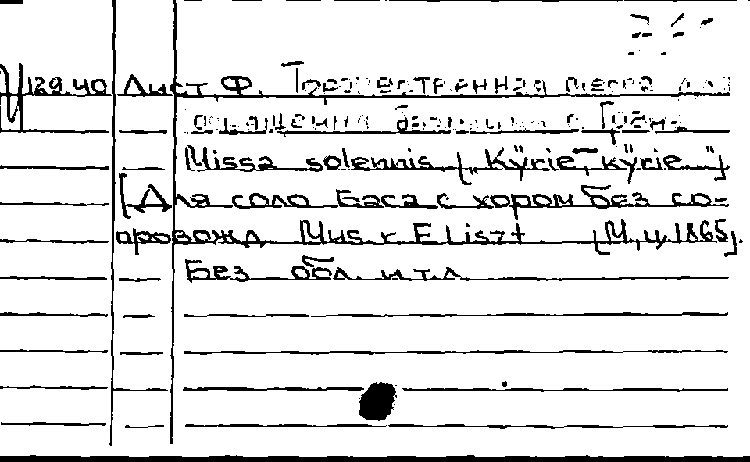 129.40 Лист, Ф. Торжественная месса для
освящения базилики в Гране
Missa solennis [„Kÿrie, kÿrie..."]
[Для соло баса с хором без со-
провожд. Mus. v. F. Liszt. [М., ц. 1865].
Без обл. и т.л.